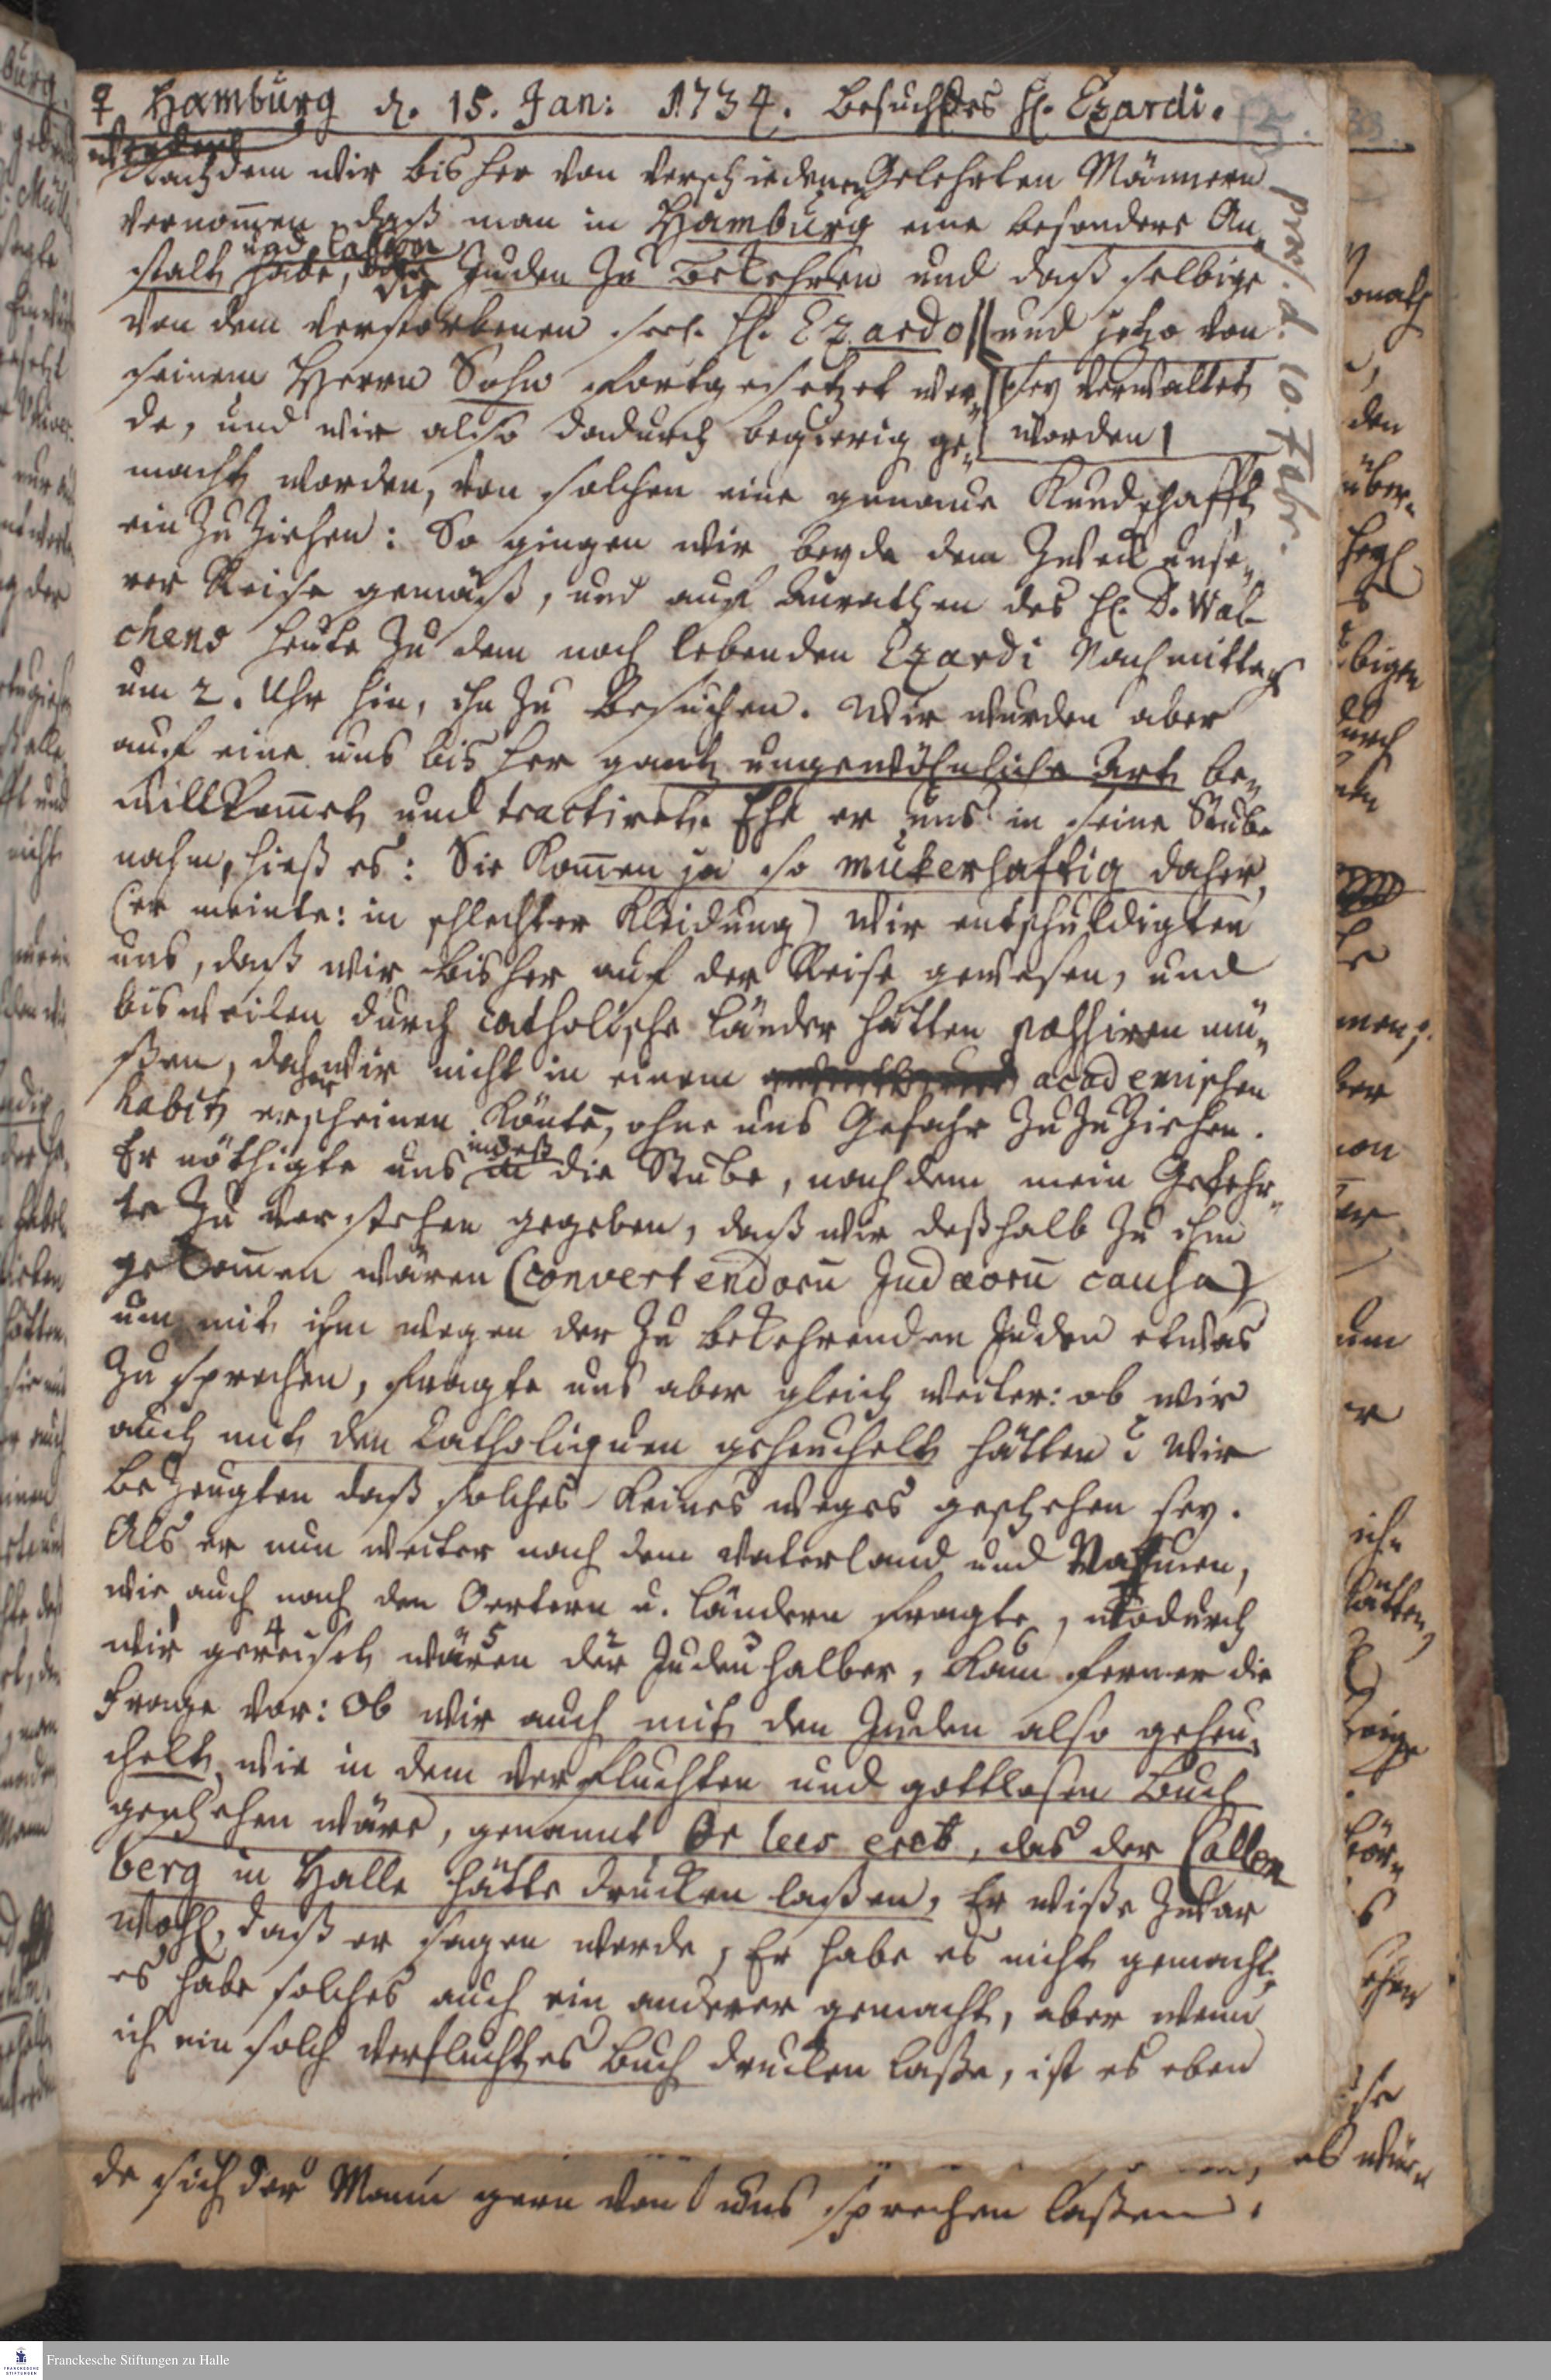 ♀ Hamburg d. 15. Jan: 1734. Besuch des H. Ezardi.
Nachdem wir bisher von verschiedenen Gelehrten Männern
vernom̄en, daß man in Hamburg eine besondere An¬
und Cassa
stalt habe, die Juden zu bekehren und daß selbige
von dem verstorbenen seel. H. Ezardo und jetzo von
seinem Herrn Sohn fortgesetzet wer¬
sey verwaltet
de, und wir also dadurch begierig ge¬
worden
macht worden, von solchen eine genaue Kundschafft
ein zu ziehen: So gingen wir beyde dem Zweck unse¬
rer Reise gemäß, und auf Anrathen des H. D. Wal¬
chens heute zu dem noch lebenden Ezardi Nachmittags
um 2. Uhr hin, ihn zu besuchen. Wir wurden aber
auf eine uns bisher gantz ungewöhnliche Art be¬
willkom̄et und tractiret. Ehe er uns in seine Stube
nahm, hieß es: Sie kom̄en ja so mukerhafftig daher,
(er meinte: in schlechter Kleidung) wir entschuldigten
uns, daß wir bisher auf der Reise gewesen, und
bisweilen durch catholische Länder hätten passiren mü¬
ßen, daher wir nicht in einem academischen
habit erscheinen könte, ohne uns Gefahr zu zu ziehen.
indeß
Er nöthigte uns in die Stube, nach dem mein Gefehr¬
te zu verstehen gegeben, daß wir deßhalb zu ihm
gekom̄en wären (convertendorū Judaeorū causa)
um mit ihm wegen der zu bekehrenden Juden etwas
zu sprechen, fragte uns aber gleich weiter: ob wir
auch mit den Catholiquen geheuchelt hätten? Wir
bezeugten daß solches keines weges geschehen sey.
Als er nun weiter nach dem Vaterland und Nahmen,
wie auch nach den Oertern u. Ländern fragte, wodurch
wir gereiset wären der Juden halber, kam ferner die
Frage vor: Ob wir auch mit den Juden also geheu¬
chelt, wie in dem verfluchten und gottlosen Buch
geschehen wäre, genannt Or lees ereb, das der Callen
berg in Halle hätte drucken laßen, Er wiße zwar
wohl, daß er sagen werde, Er habe es nicht gemacht,
es habe solches auch ein anderer gemacht, aber wenn
ich ein solch verfluchtes Buch drucken laße, ist es eben
de sich der Mann gern von uns sprechen laßen.
praes. d. 10. Febr.
Franckesche Stiftungen zu Halle